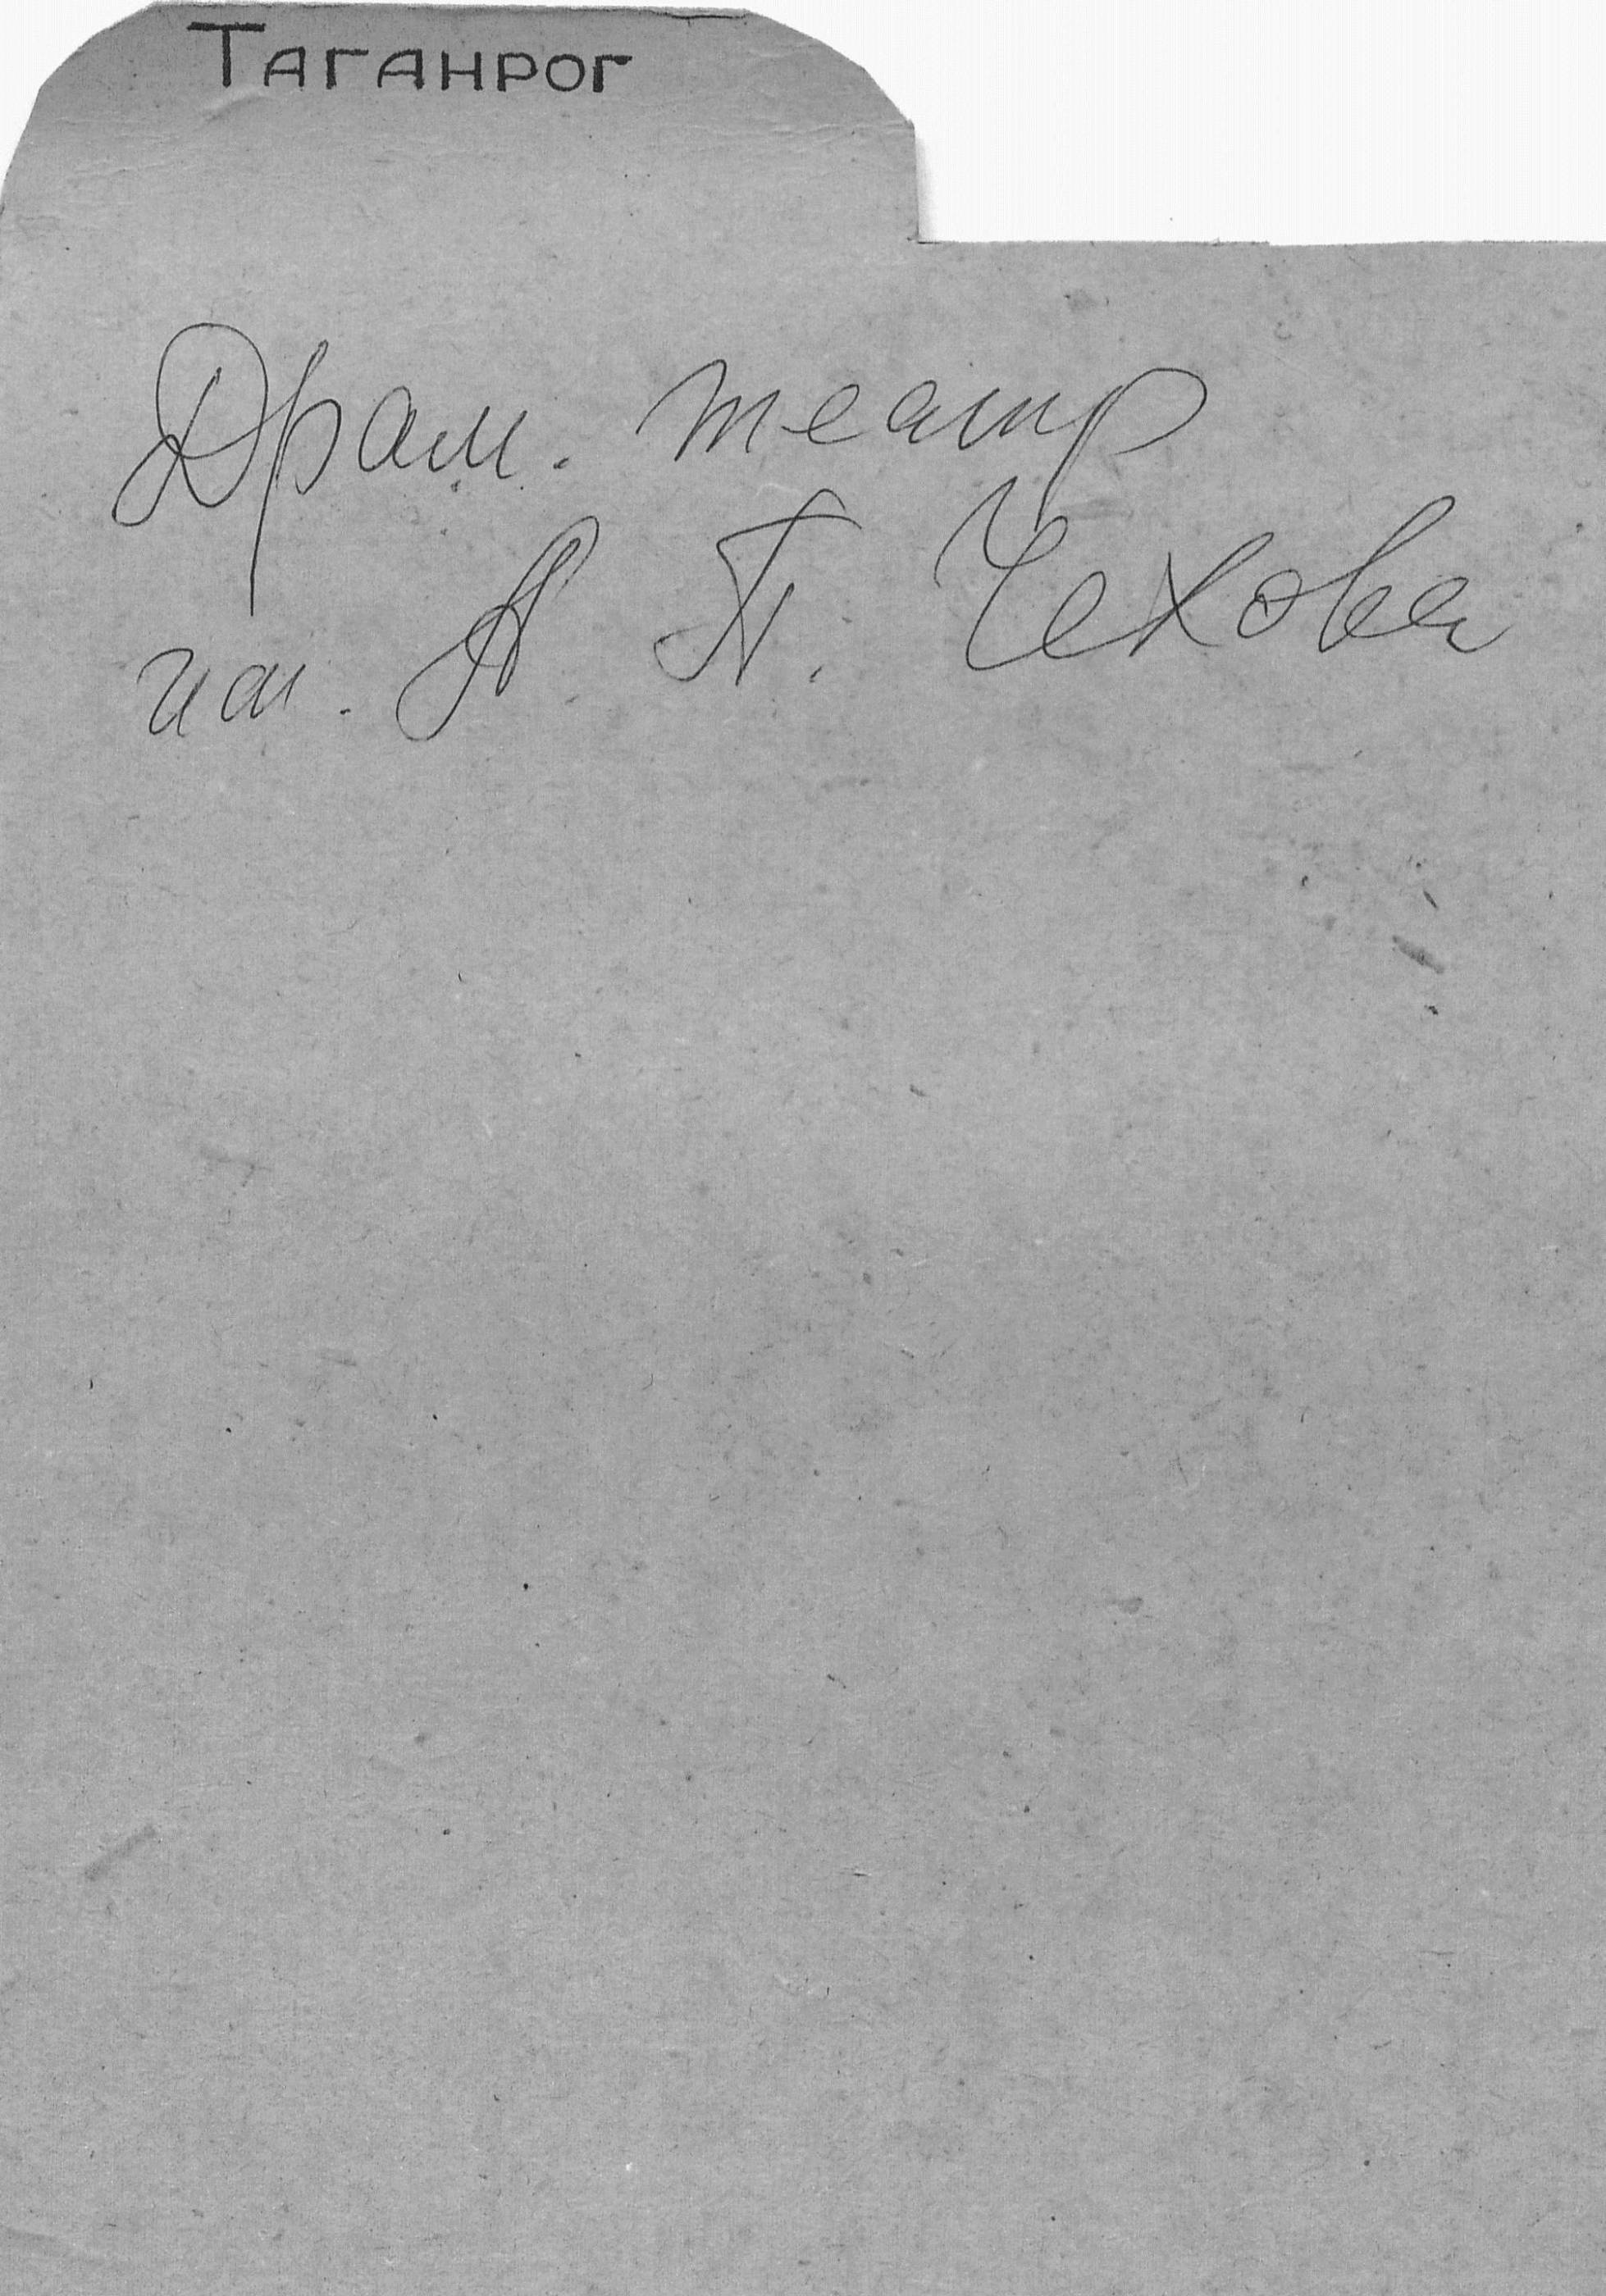 Таганрог
Драм. театр
им. А. П. Чехова